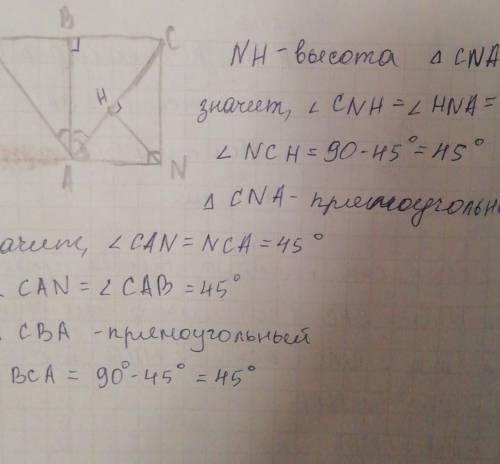 B
C
H
A
N
NH - высота △ CNA
значит, ∠ CNH = ∠ HNA =
∠ NCH = 90 - 45° = 45°
△ CNA - прямоугольн
начит, ∠ CAN = NCA = 45°
∠ CAN = ∠ CAB = 45°
CBA - прямоугольный
BCA = 90° - 45° = 45°